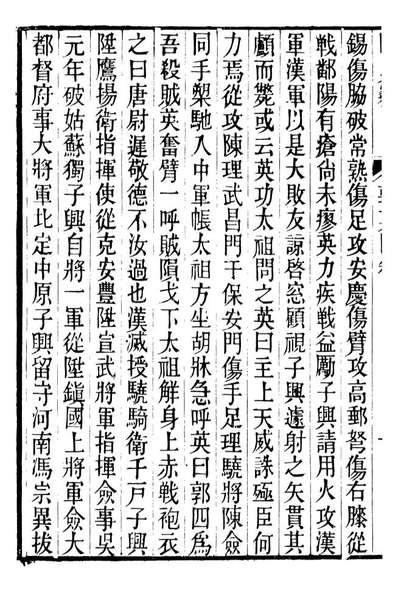 錫傷脇破常熟傷足攻安慶傷臂攻高郵弩傷右滕從
戰鄱陽有瘡尚未瘳英力疾戰益勵子興請用火攻漢
軍漢軍以是大敗友諒啓窓顧視子興遽射之矢貫其
顱而斃或云英功太祖問之英曰主上天威誅殛臣何
力焉從攻陳理武昌門于保安門傷手足理驍將陳僉
同手槊馳入中軍帳太祖方坐胡牀急呼英曰郭四爲
吾殺賊英奮臂一呼賊隕戈下太祖解身上赤戰袍衣
之曰唐尉遲敬德不汝過也漢滅授驍騎衛千戸子興
陞鷹揚衛指揮使從克安豐陞宣武將軍指揮僉事吳
元年破姑蘇獨子興自將一軍從陞鎮國上將軍僉大
都督府事大將軍北定中原子興留守河南馮宗異拔